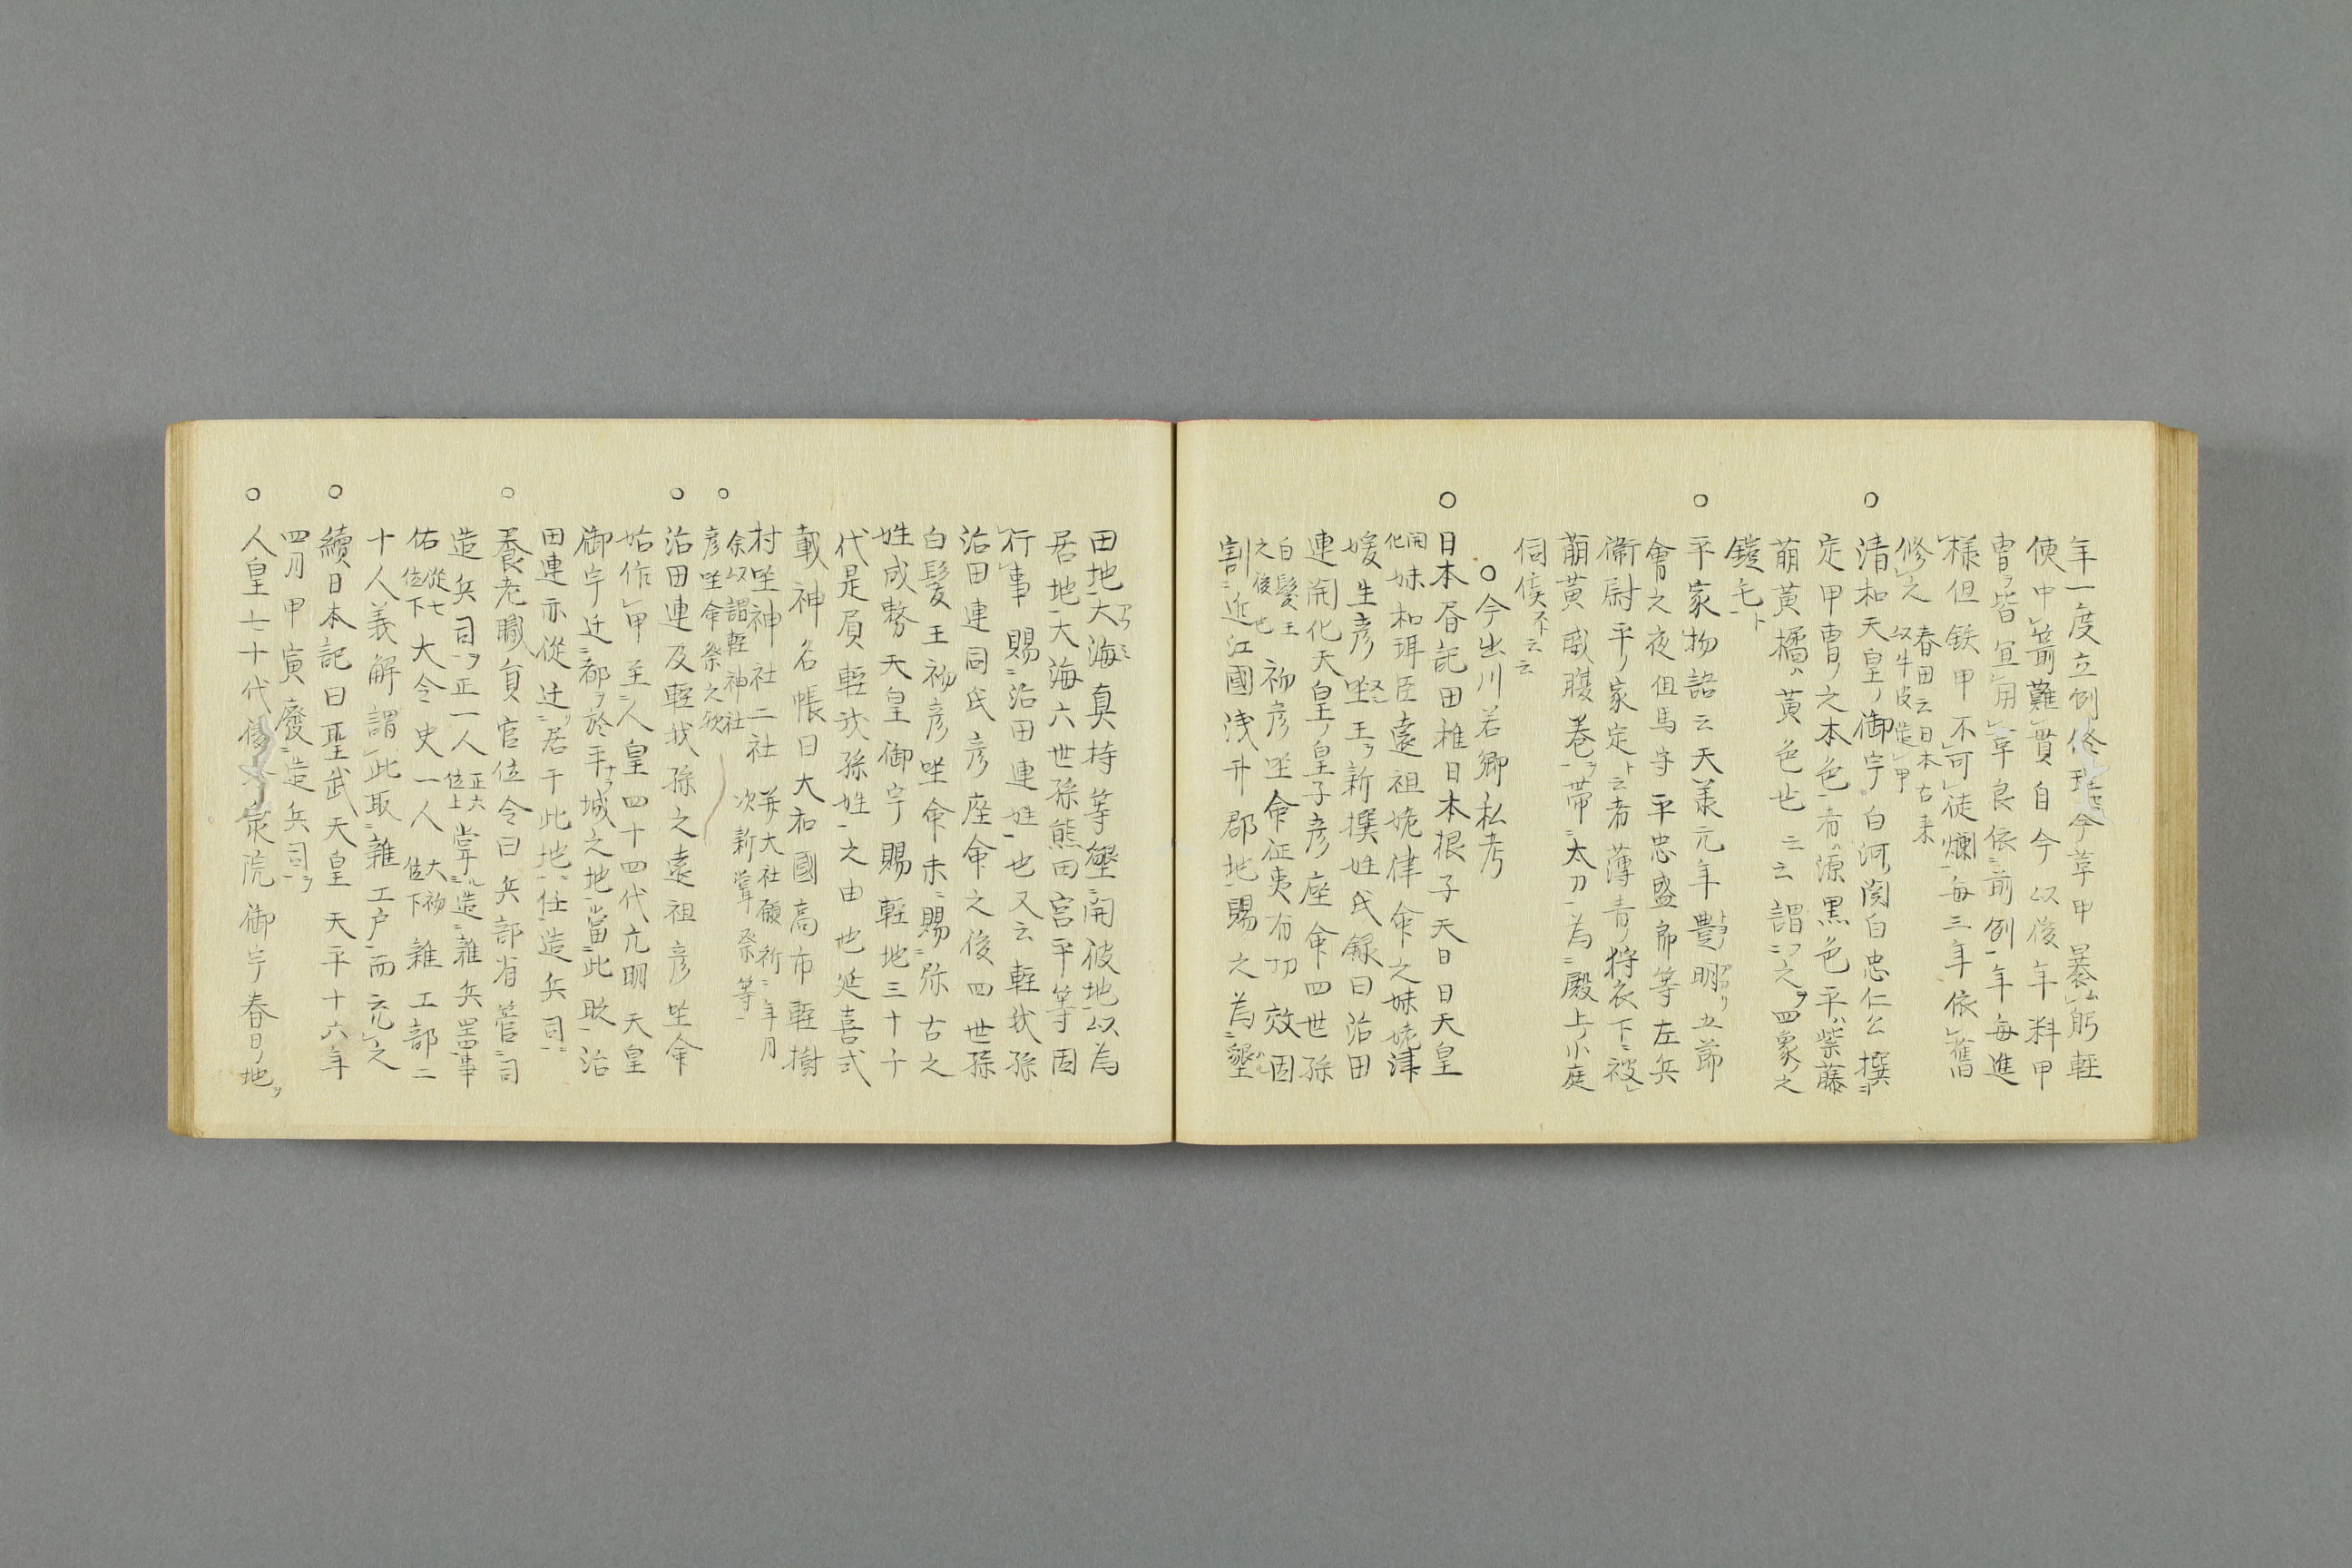 年一度立例修理今革甲曓躬軽
使中箭難貫自今以後年料甲
曹ヲ皆宜用革良依前例年毎進
様但鉄甲不可徒爛毎三年依舊
修之 春田云日本古来
以牛皮造甲
○清和天皇ノ御宇白河関白忠仁公撰
定甲曹ノ之本色者源黒色平ハ紫藤ハ
萌黄橘ハ黄色也云云謂之ヲ四象之
鎧毛ト
○平家物語云天義元年豊明ノ五節
會之夜但馬守平忠盛郎等左兵
衞尉平ノ家定ト云者薄青ノ狩衣下ニ被
萌黄威腹巻ヲ帯太刀為殿上ノ小庭
伺侯不云云
○今出川若卿私考
○日本㫪記田椎日本根子天日日天皇
開化妹和珥臣遠祖姥津命之妹姥津
媛生彦坐王ヲ新撰姓氏録曰治田
連開化天皇ノ皇子彦座命四世孫
白髪王之後也 初彦坐命征夷有切效因
割近江國浅井郡地賜之為墾
田地大海真持等墾開彼地以為
居地大海六世孫熊田宮平等因
行事賜治田連姓也又云軽我孫
治田連同氏彦座命之後四世孫
白髪王初彦坐命未賜弥古之
姓成務天皇御宇賜軽地三十千
代是屓軽我孫姓之由也延喜式
載神名帳曰大和國高市軽樹
村坐神社二社 並大社願祈年月
次新嘗祭等
○余以謂軽神社
彦坐命祭之欤
○治田連及軽我孫之遠祖彦坐命
始作甲至人皇四十四代亢明天皇
御宇迁都ヲ於平城之地當此時治
田連亦從迁居于此地任造兵司
○養老職負官位令曰兵部省管司
造兵司ヲ正一人 正六位上 掌造雑兵噐事
佑 從七位下 大令史一人 大初位下 雑工部二
十人義解謂此取雑工户而充之
○續日本記曰聖武天皇天平十六年
四月甲寅廢造兵司ヲ
○人皇七十代後泉院御宇春日ノ地ヲ